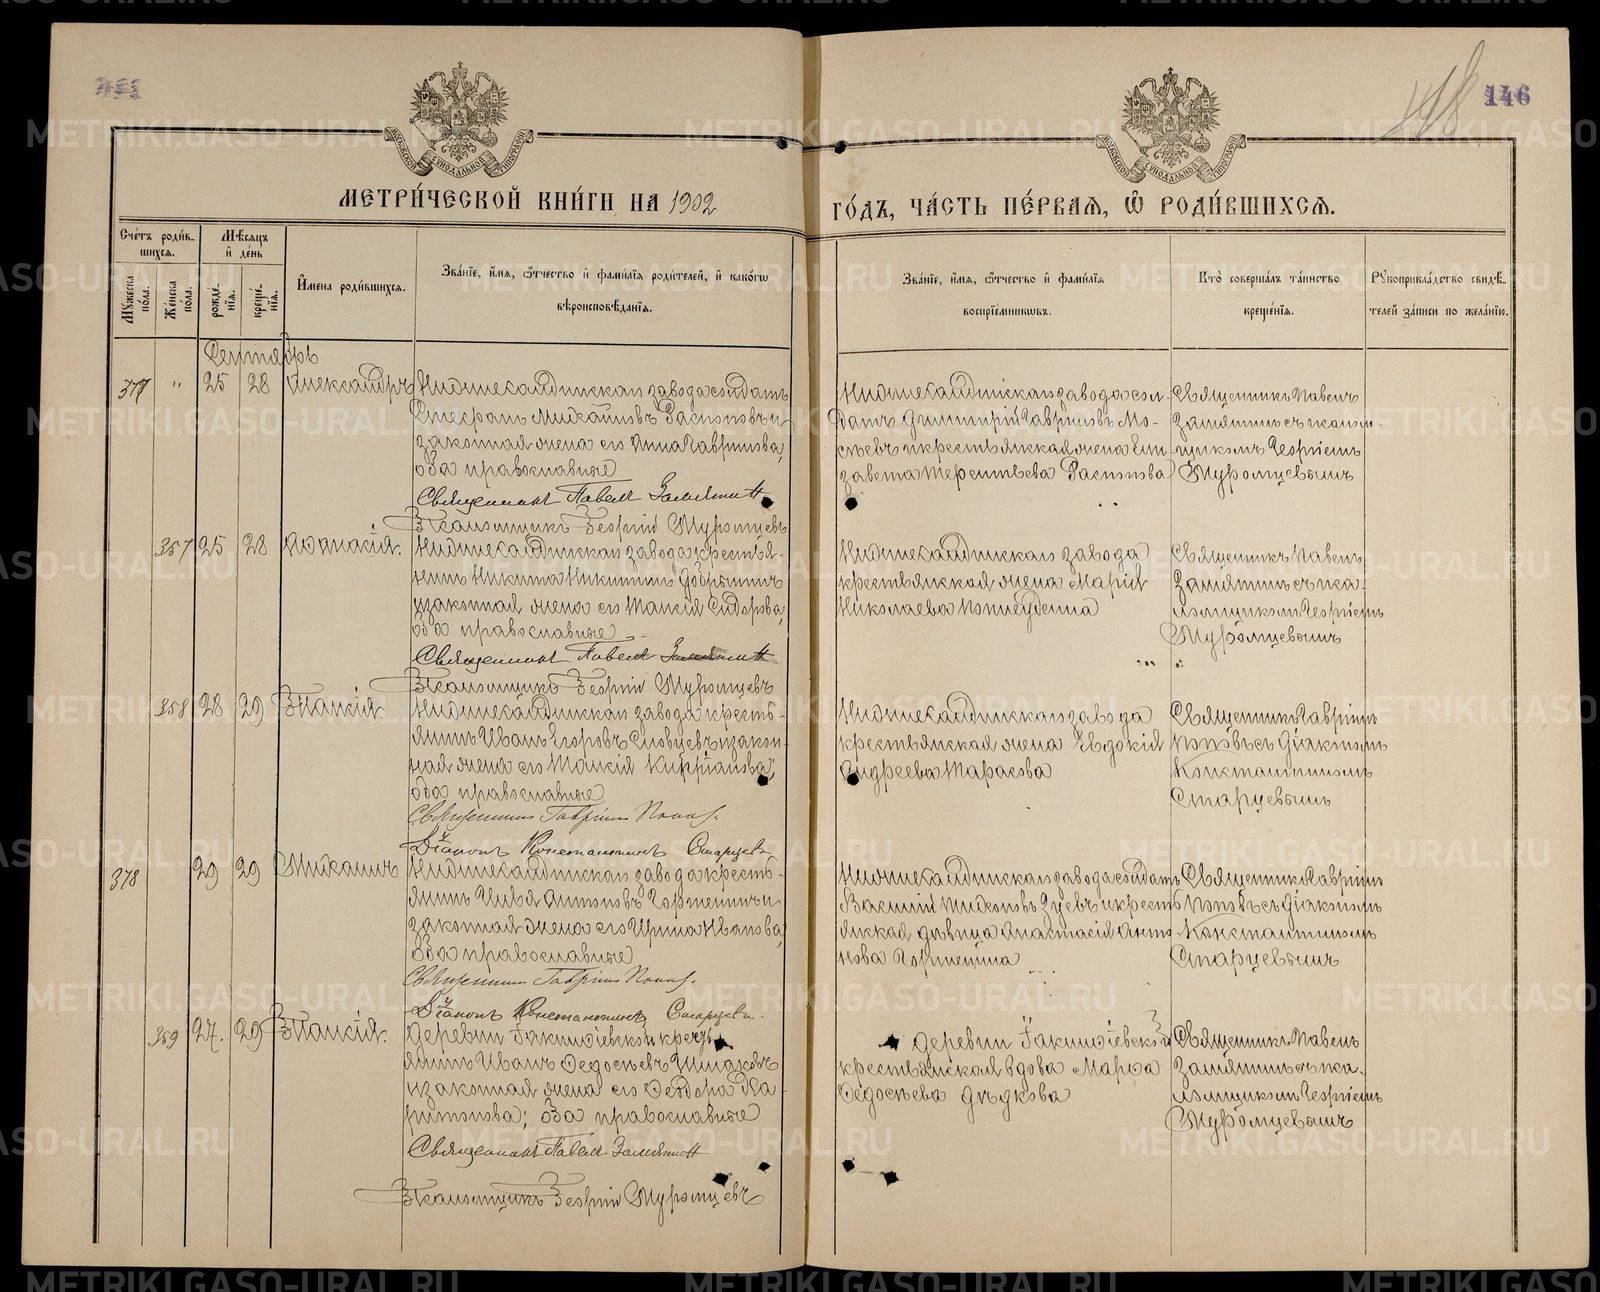 146
148
МЕТРИ́ЧЕСКОЙ КНИ́ГИ НА 1902
ГО́ДЪ, ЧА́СТЬ ПЕ́РВАЯ, Ѽ РОДИ́ВШИХСЯ.
Сче́тъ роди́в-
шихся.
Мѣ́сяцъ
и҆ де́нь
Му́жеска по́ла.
Же́нска по́ла.
рожде́-
нїя.
креще́-
нїя.
И҆мена роди́вшихся.
Зва́нїе, и҆́мя, ѻ҆́тчество и҆ фами́лїя роди́телей, и҆ како́гѡ
вѣроисповѣ́данїя.
Зва́нїе, и҆́мя, ѻ҆́тчество и҆ фами́лїя
воспрїе́мниковъ.
Кто̀ соверша́лъ та́инство
креще́нїя.
Рукоприкла́дство свидѣ́-
телей за́писи по жела́нїю.
Сентябрь
377 " 25 28 Александръ
Нижнесалдинскаго завода солдатъ
Михаиловъ Распоповъ и
законная жена его Анна Гаврилова,
оба православные
Священникъ Павелъ Замятинъ
Псаломщикъ Георгій Муромцевъ
Нижнесалдинскаго завода сол-
датъ Димитрій Гавриловъ Мо-
сѣевъ и крестьянская жена Ели-
завета Терентьева Распопова
Священникъ Павелъ
Замятинъ съ псалом-
щикомъ Георгіемъ
Муромцевымъ
357 25 28 Аѳанасія.
Нижнесалдинскаго завода крестья-
нинъ Никита Никитинъ Добрынинъ
и законная жена его Таисія Сидорова,
оба православные
Священникъ Павелъ Замятинъ
Псаломщикъ Георгій Муромцевъ
Нижнесалдинскаго завода
крестьянская жена Марія
Николаева
Священникъ Павелъ
Замятинъ съ пса-
ломщикомъ Георгіемъ
Муромцевымъ
358 28 29 Таисія.
Нижнесалдинскаго завода кресть-
янинъ Иванъ Егоровъ Словцевъ и закон-
ная жена его Таисія Кипріанова,
оба православные
Священникъ Гавріилъ Поповъ.
Діаконъ Константинъ Старцевъ
Нижнесалдинскаго завода
крестьянская жена Евдокія
Андреева Тарасова
Священникъ Гавріилъ
Поповъ съ діакономъ
Константиномъ
Старцевымъ
378 29 29 Михаилъ
Нижнесалдинскаго завода кресть-
янинъ Илья Антоновъ Горшенинъ и
законная жена его Ирина Иванова,
оба православные
Священникъ Гавріилъ Поповъ.
Діаконъ Константинъ Старцевъ.
Нижнесалдинскаго завода солдатъ
Василій Тихоновъ Зуевъ и кресть-
янская дѣвица Анастасія Анто-
нова Горшенина
Священникъ Гавріилъ
Поповъ съ діакономъ
Константиномъ
Старцевымъ
359 27. 29 Таисія.
деревни кресть-
янинъ Иванъ Ѳедосѣевъ Шмаковъ
и законная жена его Ѳеодора Ха-
ритонова; оба православные
Священникъ Павелъ Замятинъ
Псаломщикъ Георгій Муромцевъ
деревни
крестьянская вдова Марѳа
Ѳедосѣева Дѣдкова
Священникъ Павелъ
Замятинъ съ пса-
ломщикомъ Георгіемъ
Муромцевымъ
METRIKI.GASO-URAL.RU